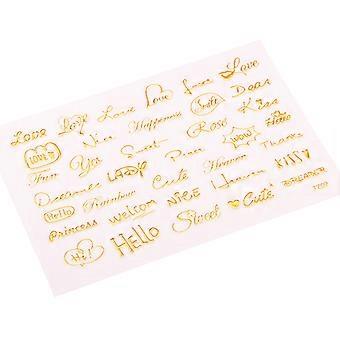 Love Love Love Love Love Love
Nice Happiness Smile Dear
LOVE Yes Sweet Rose Kiss
True LADY Peace WOW Hello
Dreams Cute Heaven Thanks
Hello Rainbow NICE Heaven KISS
Princess welcom Sweet Cute BREADER
Hi! HELLO